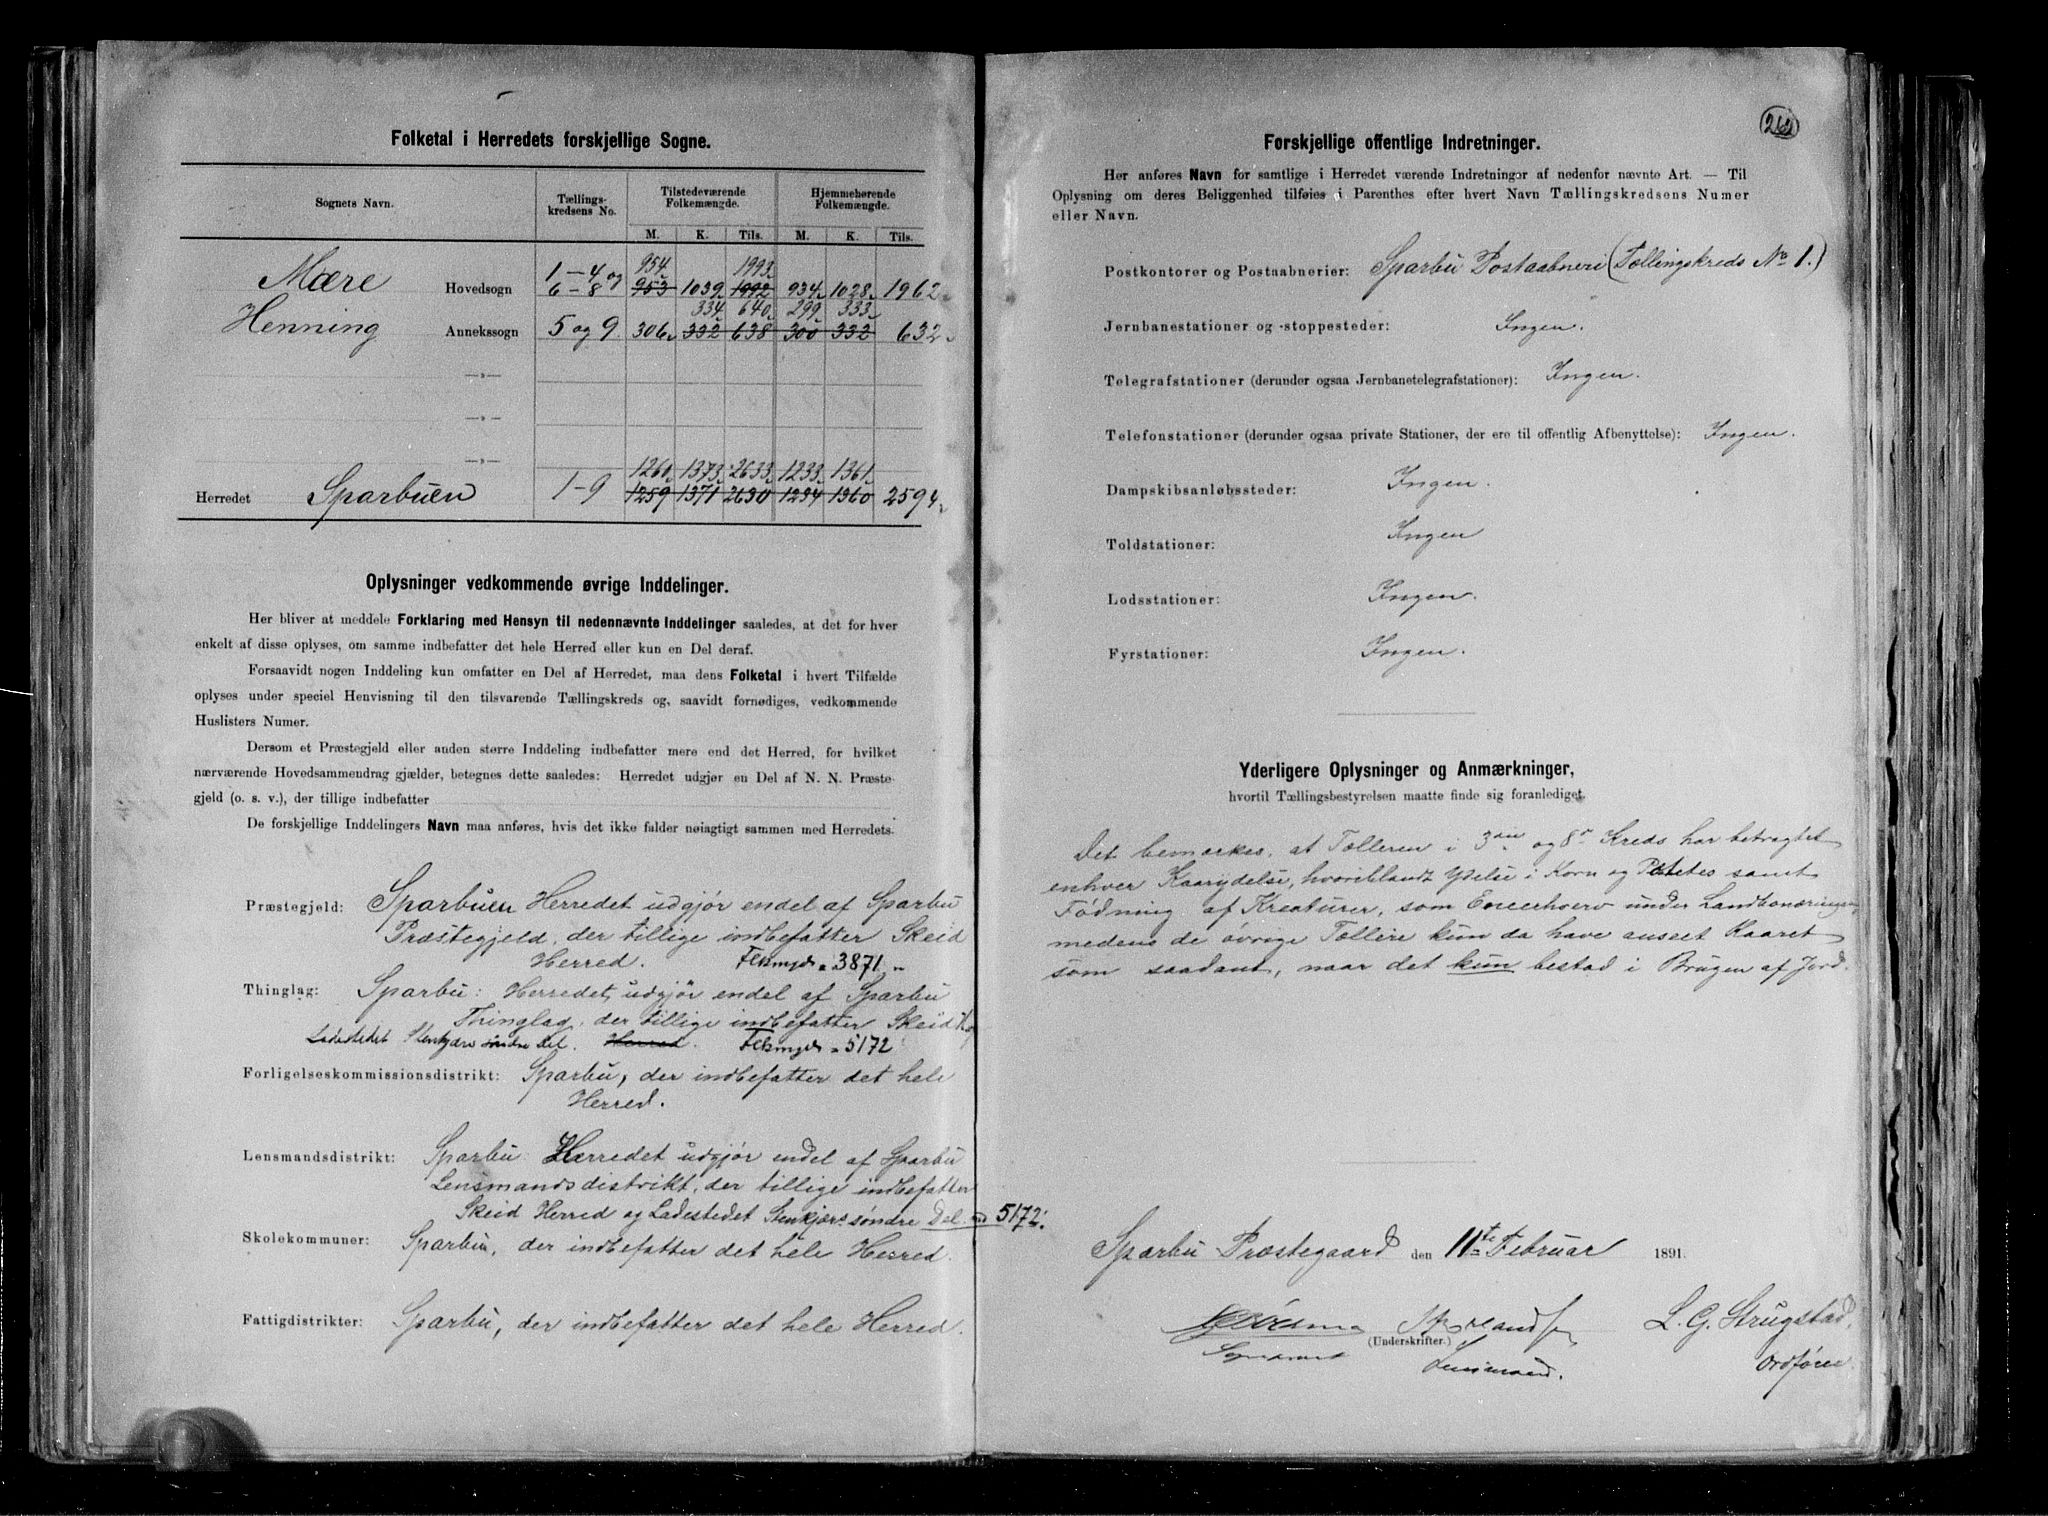 Folketal i Herredets forskjellige Sogne.
Sognets Navn. Tællings-kredsens No. Tilstedeværende Folkemængde. Hjemmehørende Folkemængde.
M. K. Tils. M. K. Tils.
954 1993
Mære Hovedsogn 1–4 og 6–8 953 1039 1992 934 1028 1962
334 640 299 333
Henning Annekssogn 5 og 9. 306 332 638 300 332 632
—»—
—»—
—»—
1260 1373 2633 1233 1361
Herredet Sparbuen 1-9 1259 1371 2630 1234 1360 2594
Oplysninger vedkommende øvrige Inddelinger.
Her bliver at meddele Forklaring med Hensyn til nedennævnte Inddelinger saaledes, at det for hver
enkelt af disse oplyses, om samme indbefatter det hele Herred eller kun en Del deraf.
Forsaavidt nogen Inddeling kun omfatter en Del af Herredet, maa dens Folketal i hvert Tilfælde
oplyses under speciel Henvisning til den tilsvarende Tællingskreds og, saavidt fornødiges, vedkommende
Huslisters Numer.
Dersom et Præstegjeld eller anden større Inddeling indbefatter mere end det Herred, for hvilket
nærværende Hovedsammendrag gjælder, betegnes dette saaledes: Herredet udgjør en Del af N. N. Præste-
gjeld (o. s. v.), der tillige indbefatter
De forskjellige Inddelingers Navn maa anføres, hvis det ikke falder nøiagtigt sammen med Herredets.
Præstegjeld: Sparbuen Herredet udgjør endel af Sparbu
Præstegjeld, der tillige indbefatter Skeid
Herred. Flkmgd. 3871
Thinglag: Sparbu: Herredet, udgjør endel af Sparbu
Thinglag, der tillige indbefatter Skeid H. og
Ladestedet Stenkjærs søndre Del. Herred. Flkmgd. 5172
Forligelseskommissionsdistrikt: Sparbu, der indbefatter det hele
Herred.
Lensmandsdistrikt: Sparbu: Herredet udgjør endel af Sparbu
Lensmandsdistrikt, der tillige indbefatter
Skeid Herred og Ladestedet Stenkjærs søndre Del. 5172.
Skolekommuner: Sparbu, der indbefatter det hele Herred.
Fattigdistrikter: Sparbu, der indbefatter det hele Herred.
262
Forskjellige offentlige Indretninger.
Her anføres Navn for samtlige i Herredet værende Indretninger af nedenfor nævnte Art. — Til
Oplysning om deres Beliggenhed tilføies i Parenthes efter hvert Navn Tællingskredsens Numer
eller Navn.
Postkontorer og Postaabnerier: Sparbu Postaabneri (Tællingskreds No 1.)
Jernbanestationer og -stoppesteder: Ingen.
Telegrafstationer (derunder ogsaa Jernbanetelegrafstationer): Ingen.
Telefonstationer (derunder ogsaa private Stationer, der ere til offentlig Afbenyttelse): Ingen.
Dampskibsanløbssteder: Ingen.
Toldstationer: Ingen
Lodsstationer: Ingen.
Fyrstationer: Ingen.
Yderligere Oplysninger og Anmærkninger,
hvortil Tællingsbestyrelsen maatte finde sig foranlediget.
Det bemærkes, at Tælleren i 3die og 8de Kreds har betragtet
enhver Kaarydelse, hvoriblandt Ydelse i Korn og Potetes samt
Fødning af Kreaturer, som Eneerhverv under Landbonæringen,
medens de øvrige Tællere kun da have anseet Kaaret
som saadant, naar det kun bestod i Brugen af Jord.
Sparbu Præstegaard den 11te Februar 1891.
L. G. Strugstad,
(Underskrifter.)
Sogneprest Lensmand. Ordfører